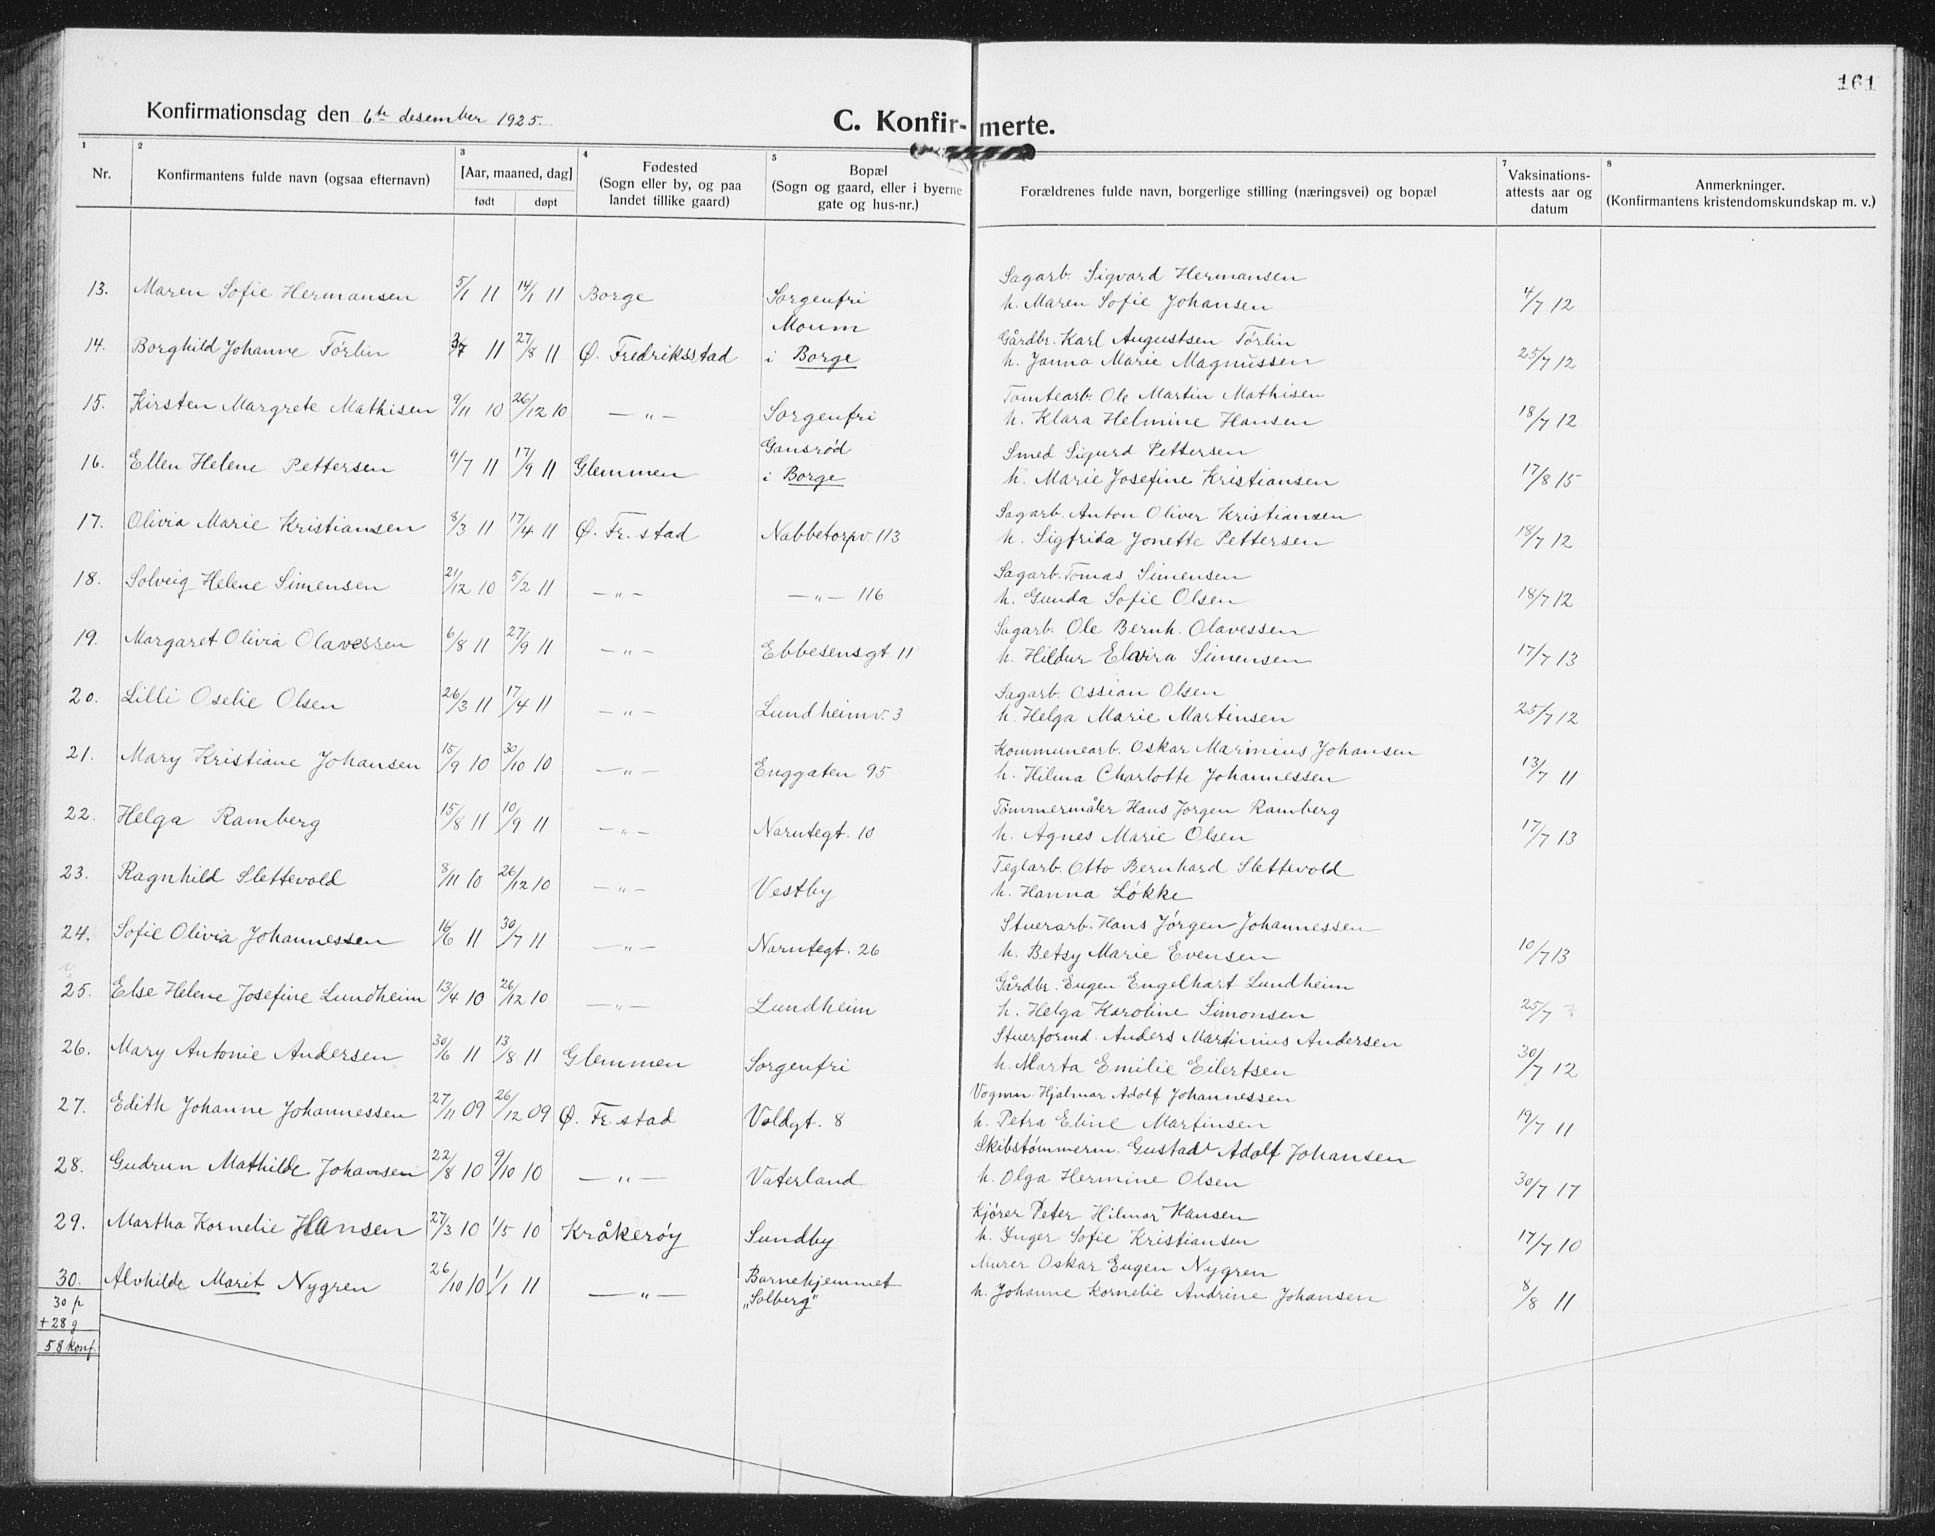 161
Konfirmationsdag den 6te desember 1925.
C. Konfir-merte.
1 2 3 4 5 6 7 8
Nr.
Konfirmantens fulde navn (ogsaa efternavn)
[Aar, maaned, dag]
født døpt
Fødested
(Sogn eller by, og paa
landet tillike gaard)
Bopæl
(Sogn og gaard, eller i byerne
gate og hus-nr.)
Forældrenes fulde navn, borgerlige stilling (næringsvei) og bopæl
Vaksinations-
attests aar og
datum
Anmerkninger.
(Konfirmantens kristendomskundskap m. v.)
Sagarb. Sigvard Hermansen
13. Maren Sofie Hermansen 5/1 11 14/1 11 Borge Sorgenfri h. Maren Sofie Johansen 4/7 12
Moum Gårdbr. Karl Augustsen Tørlin
14. Borghild Johanne Tørlin 11 27/8 11 Ø. Fredriksstad i Borge h. Janna Marie Magnussen 25/7 12
Tomtearb. Ole Martin Mathisen
15. Kirsten Margrete Mathisen 9/11 10 26/12 10 —"— Sorgenfri h. Klara Helmine Hansen 18/7 12
Gansrød Smed Sigurd Pettersen
16. Ellen Helene Pettersen 9/7 11 17/9 11 Glemmen i Borge h. Marie Josefine Kristiansen 17/8 15
Sagarb. Anton Oliver Kristiansen
17. Olivia Marie Kristiansen 8/3 11 17/4 11 Ø. Fr. stad Nabbetorpv. 113 h. Sigfrida Jonette Pettersen 18/7 12
Sagarb. Tomas Simensen
18. Solveig Helene Simensen 21/12 10 5/2 11 —"— —"— 116 h. Gunda Sofie Olsen 18/7 12
Sagarb. Ole Bernh. Olavessen
19. Margaret Olivia Olavessen 6/8 11 27/9 11 —"— Ebbesensgt 11 h. Hildur Elvira Simensen 17/7 13
Sagarb. Ossian Olsen
20. Lilli Oselie Olsen 26/3 11 17/4 11 —"— Lundheimv. 3 h. Helga Marie Martinsen 25/7 12
Kommunearb. Oskar Marinius Johansen
21. Mary Kristiane Johansen 15/9 10 30/10 10 —"— Enggaten 95 h. Hilma Charlotte Johannessen 13/7 11
Tømmermåler Hans Jørgen Ramberg
22. Helga Ramberg 15/8 11 10/9 11 —"— Narntegt. 10 h. Agnes Marie Olsen 17/7 13
Teglarb. Otto Bernhard Slettevold
23. Ragnhild Slettevold 8/11 10 26/12 10 —"— Vestby h. Hanna Løkke
Stuerarb. Hans Jørgen Johannessen
24. Sofie Olivia Johannessen 16/6 11 30/7 11 —"— Narntegt. 26 h. Betsy Marie Evensen 10/7 13
Gårdbr. Eugen Engelhart Lundheim
25. Else Helene Josefine Lundheim 13/4 10 26/12 10 —"— Lundheim h. Helga Karoline Simonsen 25/7
Stuerformd. Anders Martinius Andersen
26. Mary Antonie Andersen 30/6 11 13/8 11 Glemmen Sorgenfri h. Marta Emilie Eilertsen 30/7 12
Vognm. Hjalmar Adolf Johannessen
27. Edith Johanne Johannessen 27/11 09 26/12 09 Ø. Fr. stad Voldgt. 8 h. Petra Eline Martinsen 19/7 11
Skibstømmerm. Gustav Adolf Johansen
28. Gudrun Mathilde Johansen 22/8 10 9/10 10 —"— Vaterland h. Olga Hermine Olsen 30/7 17
Kjører Peter Hilmar Hansen
29. Martha Kornelie Hansen 27/3 10 1/5 10 Kråkerøy Sundby h. Inger Sofie Kristiansen 17/7 10
Murer Oskar Eugen Nygren
30. Alvhilde Marit Nygren 26/10 10 1/1 11 —"— Barnehjemmet h. Johanne Kornelie Andrine Johansen 8/8 11
"Solberg"
30 p
+ 28 g
58 konf.